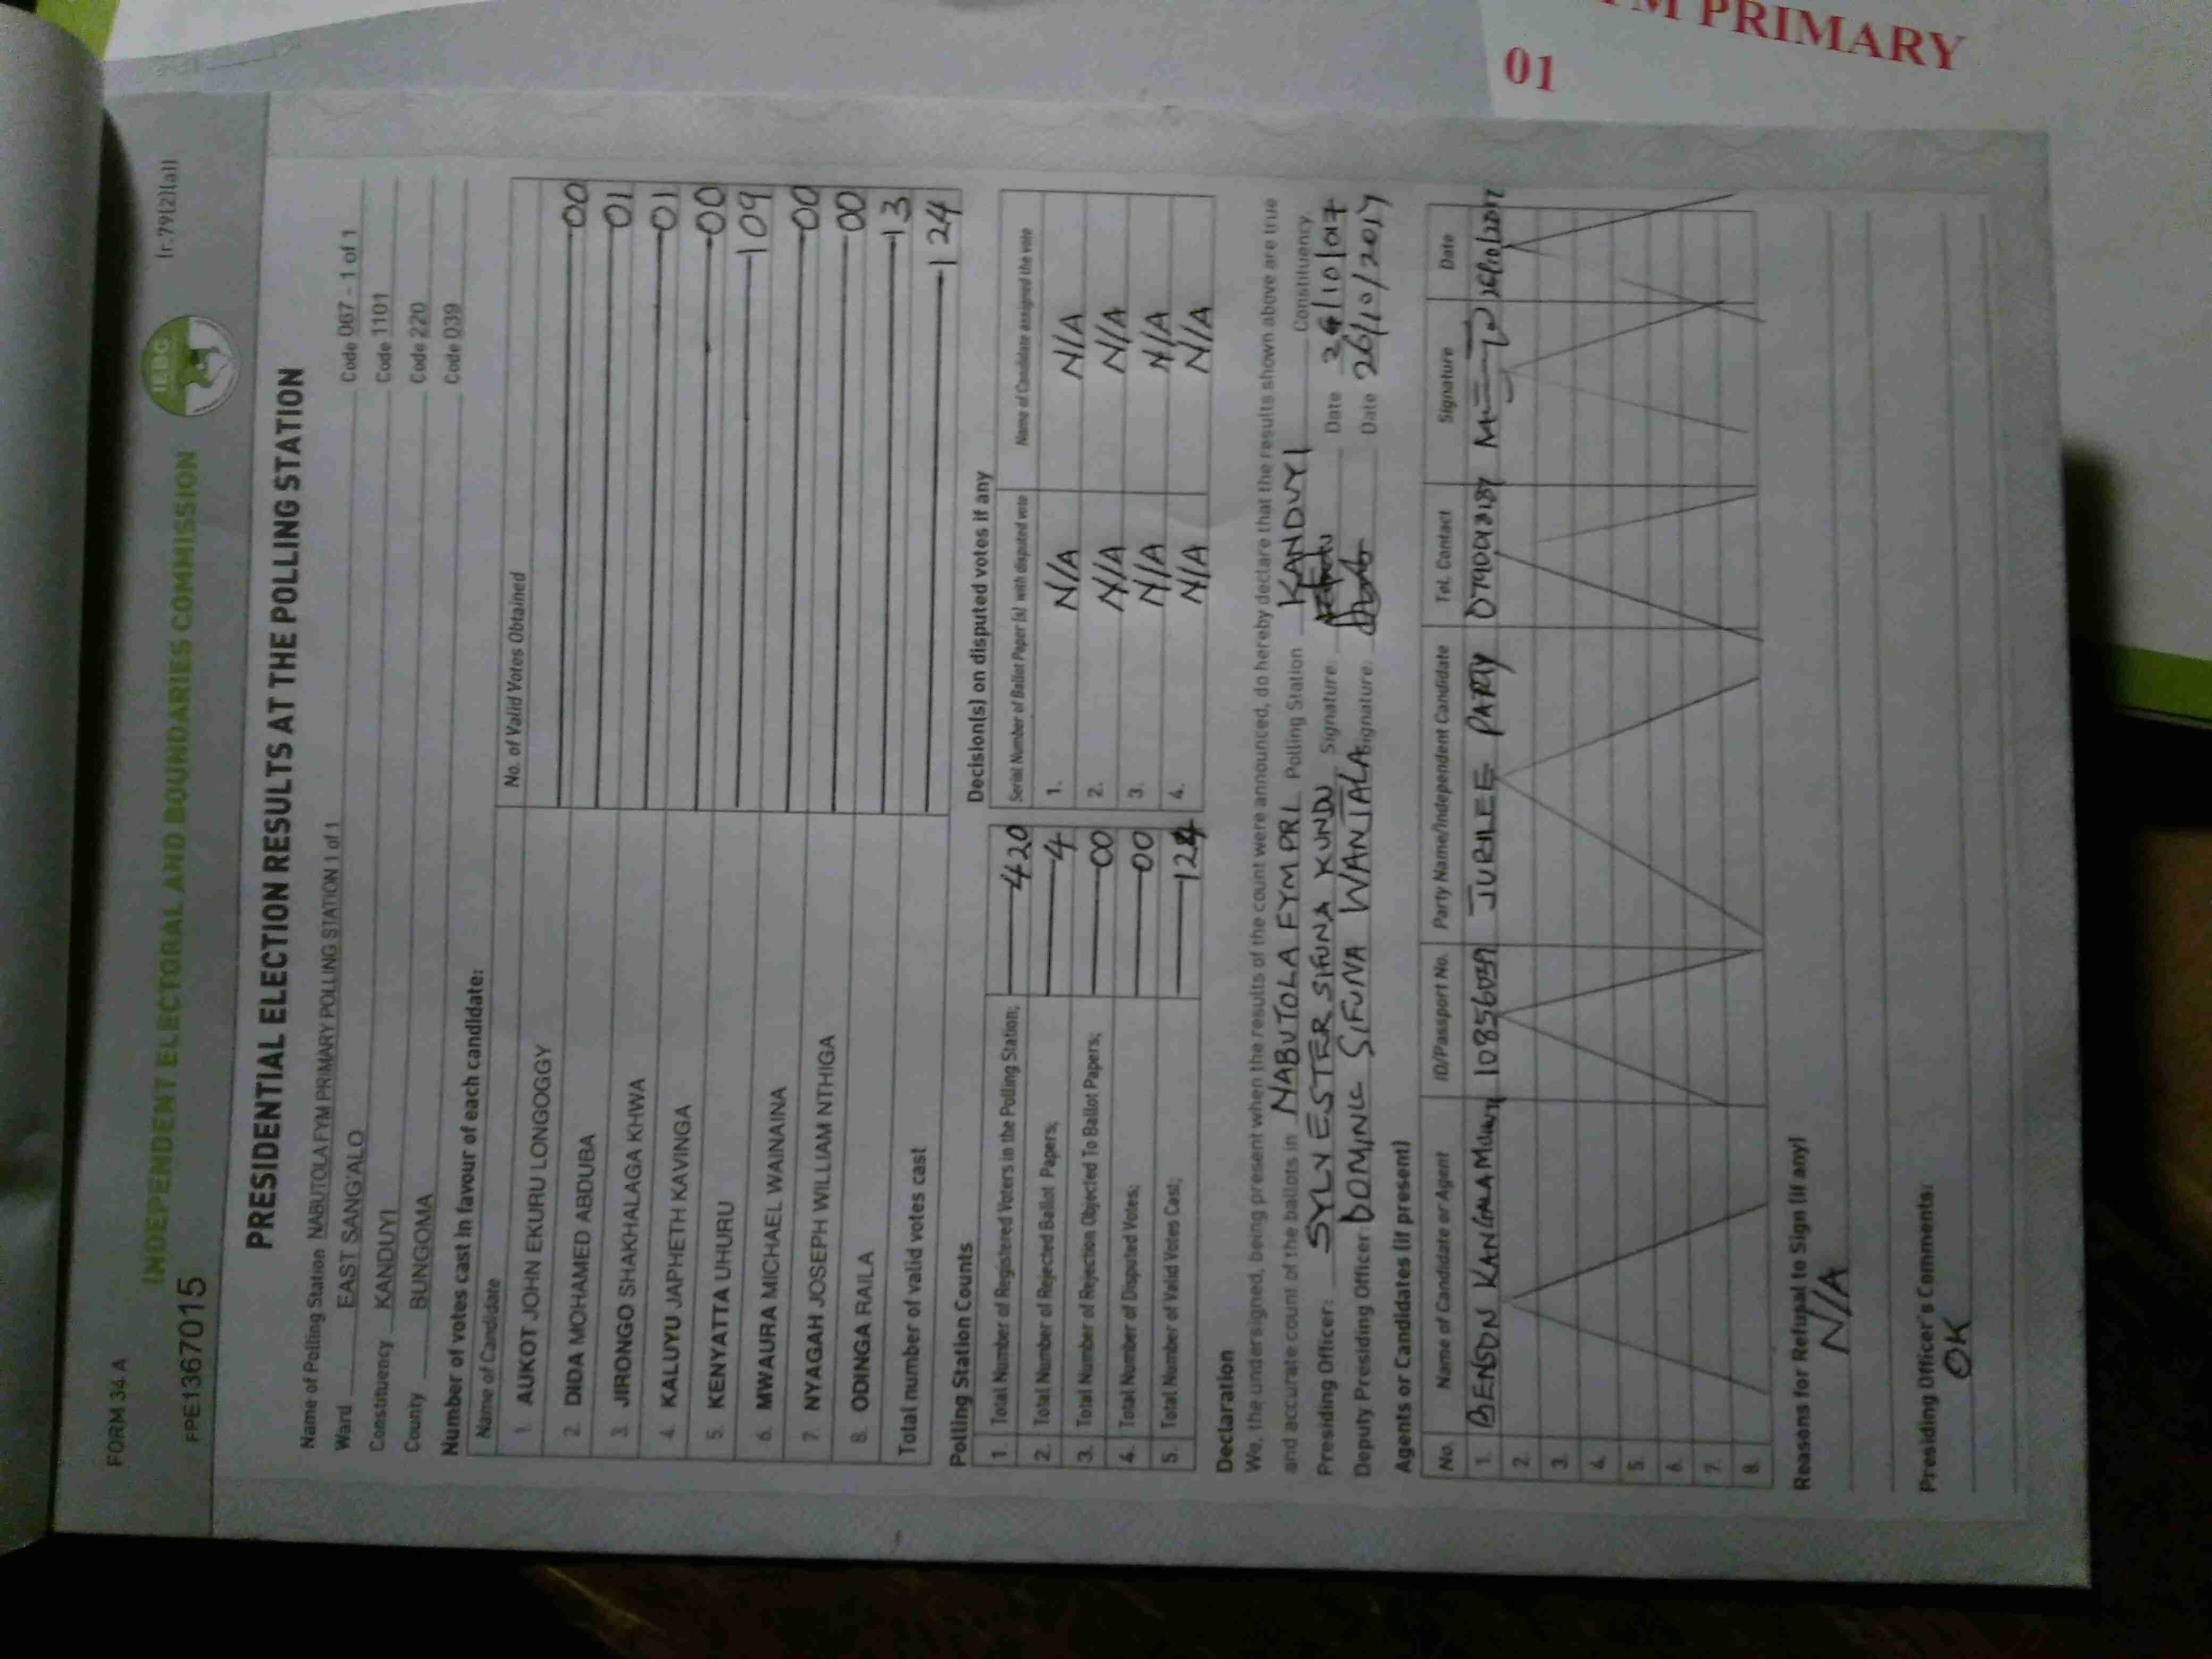 FORM 34A
INDEPENDENT ELECTORAL AND BOUNDARIES COMMISSION
IEBC
(r.79(2)(a))
FPE1367015
PRESIDENTIAL ELECTION RESULTS AT THE POLLING STATION
Name of Polling Station NABUTOLA FYM PRIMARY POLLING STATION 1 of 1 Code 067 - 1 of 1
Ward EAST SANG'ALO Code 1101
Constituency KANDUYI Code 220
County BUNGOMA Code 039
Number of votes cast in favour of each candidate:
Name of Candidate No. of Valid Votes Obtained
1. AUKOT JOHN EKURU LONGOGGY 00
2. DIDA MOHAMED ABDUBA 01
3. JIRONGO SHAKHALAGA KHWA 01
4. KALUYU JAPHETH KAVINGA 00
5. KENYATTA UHURU 109
6. MWAURA MICHAEL WAINAINA 00
7. NYAGAH JOSEPH WILLIAM NTHIGA 00
8. ODINGA RAILA 13
Total number of valid votes cast 124
Polling Station Counts
1. Total Number of Registered Voters in the Polling Station; 420
2. Total Number of Rejected Ballot Papers; 4
3. Total Number of Rejection Objected To Ballot Papers; 00
4. Total Number of Disputed Votes; 00
5. Total Number of Valid Votes Cast; 124
Decision(s) on disputed votes if any
Serial Number of Ballot Paper (s) with disputed vote Name of Candidate assigned the vote
1. N/A N/A
2. N/A N/A
3. N/A N/A
4. N/A N/A
Declaration
We, the undersigned, being present when the results of the count were announced, do hereby declare that the results shown above are true
and accurate count of the ballots in NABUTOLA FYM PRI Polling Station KANDUYI Constituency.
Presiding Officer: SYLVESTER SIFUNA KUNDU Signature: Date 26/10/017
Deputy Presiding Officer: DOMINIC SIFUNA WANJALA Signature: Date 26/10/2017
Agents or Candidates (if present)
No. Name of Candidate or Agent ID/Passport No. Party Name/Independent Candidate Tel. Contact Signature Date
1. BENSON KANGALA 10856039 JUBILEE PARTY 26/10/2017
2.
3.
4.
5.
6.
7.
8.
Reasons for Refusal to Sign (if any)
N/A
Presiding Officer's Comments:
OK
PRIMARY
01